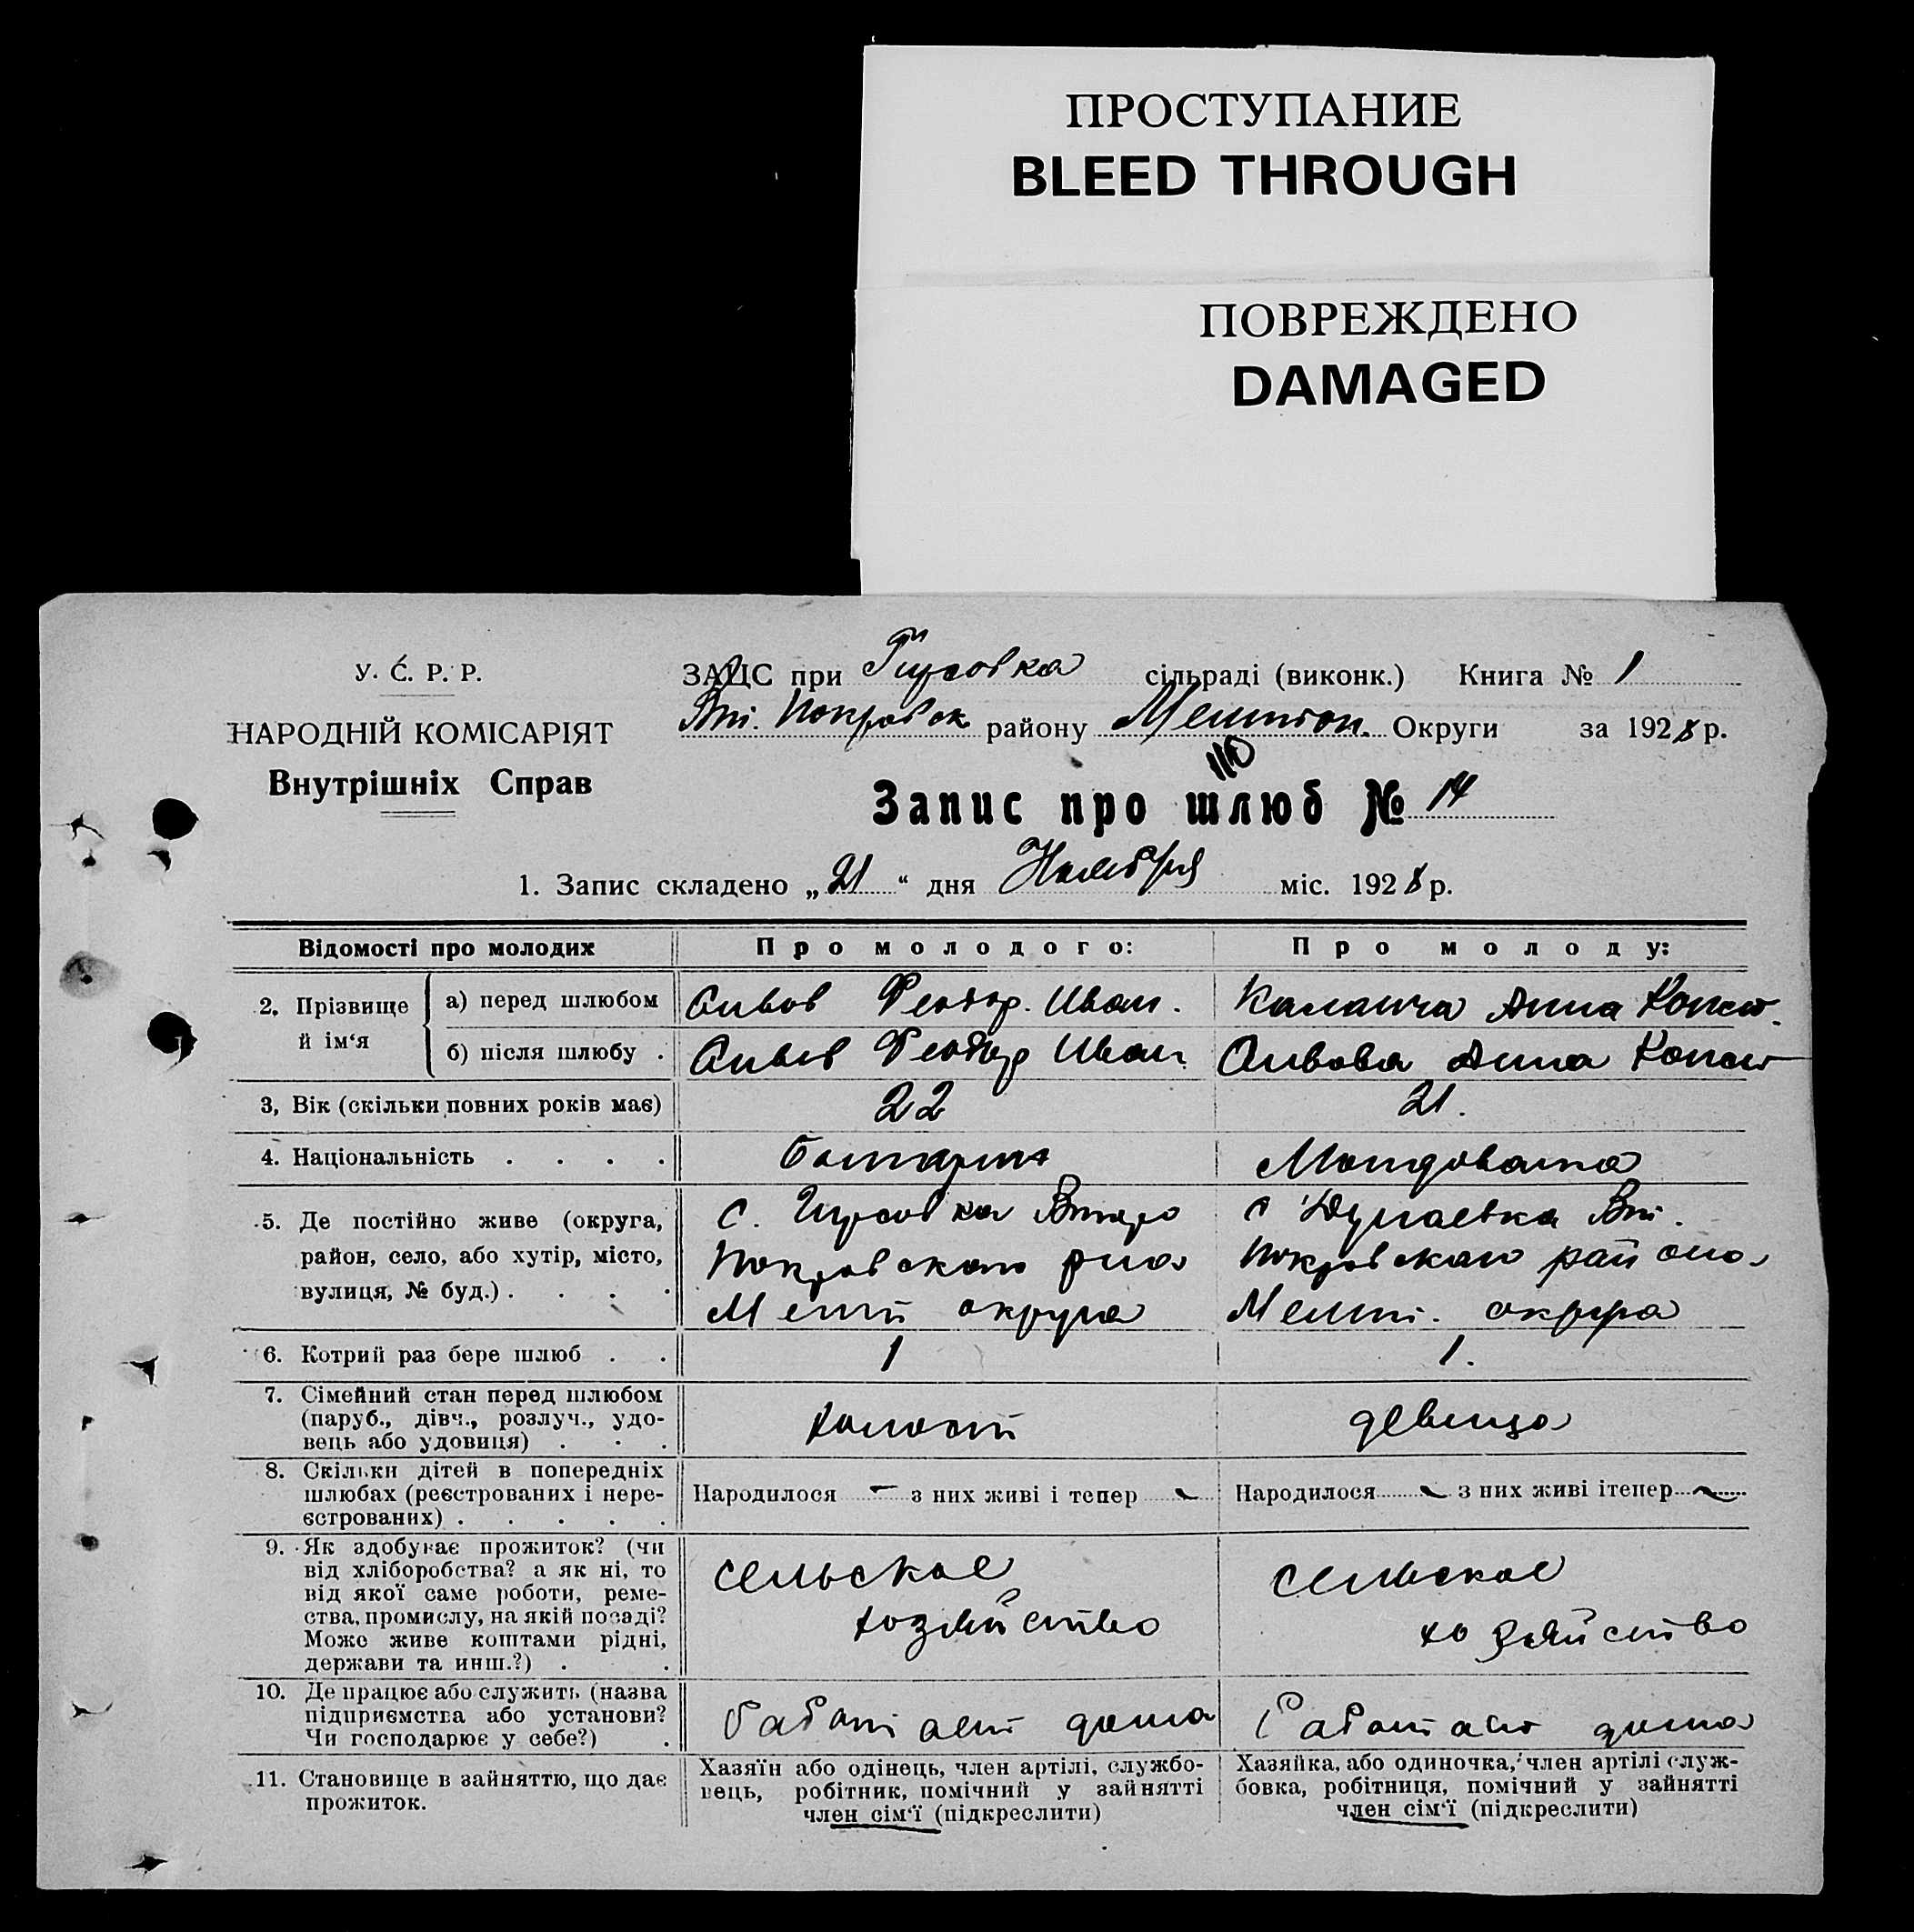 ПРОСТУПАНИЕ
BLEED THROUGH
ПОВРЕЖДЕНО
DAMAGED
У. С. Р. Р.
НАРОДНІЙ КОМІСАРІЯТ
Внутрішніх Справ
ЗАЦС при Гирсовка сільраді (виконк.) Книга № 1
Вт. Покровск району Мелитоп. Округи за 1928 р.
110
Запис про шлюб № 14
1. Запис складено „21“ дня Ноября міс. 1928 р.
Відомості про молодих Про молодого: Про молоду:
2. Прізвище й ім‘я
а) перед шлюбом Феодор. Иван. Анна
б) після шлюбу . Феодор Иван Анна
3, Вік (скільки повних років має) 22 21.
4. Національність . . . . Болгарин Молдованка
5. Де постійно живе (округа,
район, село, або хутір, місто,
вулиця, № буд.) . . . .
с. Гирсовка Второ
Покровского рна
Мелит округа
с Дунаевка Вт.
Покровскаго района
Мелит. округа
6. Котрий раз бере шлюб . . 1 1.
7. Сімейний стан перед шлюбом
(паруб., дівч., розлуч., удо-
вець або удовиця) . . .
холост девица
8. Скільки дітей в попередніх
шлюбах (реєстрованих і нере-
єстрованих) . . . . .
Народилося — з них живі і тепер —
Народилося — з них живі ітепер —
9. Як здобуває прожиток? (чи
від хліборобства? а як ні, то
від якої саме роботи, реме-
ства, промислу, на якій посаді?
Може живе коштами рідні,
держави та инш.?) . .
сельское
хозяйство
сельское
хозяйство
10. Де працює або служить (назва
підприємства або установи?
Чи господарює у себе?) .
Работает дома Работает дома
11. Становище в зайняттю, що дає
прожиток.
Хазяїн або одінець, член артілі, службо-
вець, робітник, помічний у зайнятті
член сім‘ї (підкреслити)
Хазяйка, або одиночка, член артілі служ-
бовка, робітниця, помічний у зайнятті
член сім‘ї (підкреслити)